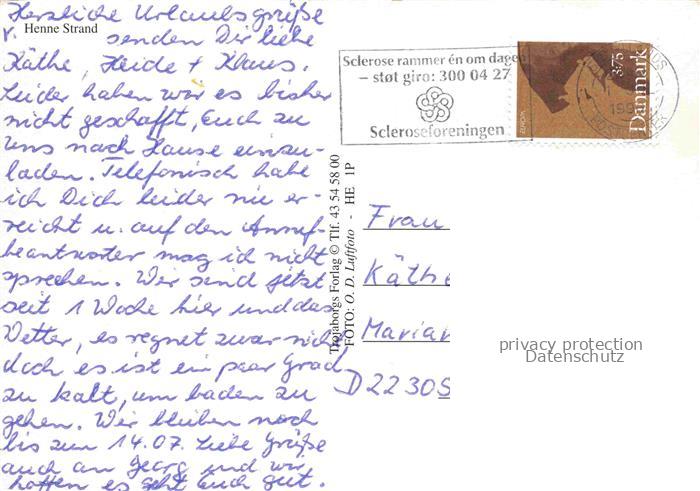 Herzliche Urlaubsgrüße
v. Henne Strand senden Dir liebe
Käthe, Heide + Klaus.
Leider haben wir es bisher
nicht geschafft, Euch zu
uns nach Hause einzu-
laden. Telefonisch habe
ich Dich leider nie er-
reicht u. auf den Anruf-
beantworter mag ich nicht
sprechen. Wir sind jetzt
seit 1 Woche hier und das
Wetter, es regnet zwar nich
doch es ist ein paar Grad
zu kalt, um baden zu
gehen. Wir bleiben noch
bis zum 14.07. Liebe Grüße
auch an Georg und wir
hoffen es geht Euch gut.
Sclerose rammer én om dagen
– støt giro: 300 04 27
Scleroseforeningen
EUROPA
3.75
Danmark
Trojaborgs Forlag © Tlf. 43 54 58 00
FOTO: O. D. Luftfoto - HE 1P
Frau
Käthe
Marian
D 2230
privacy protection
Datenschutz